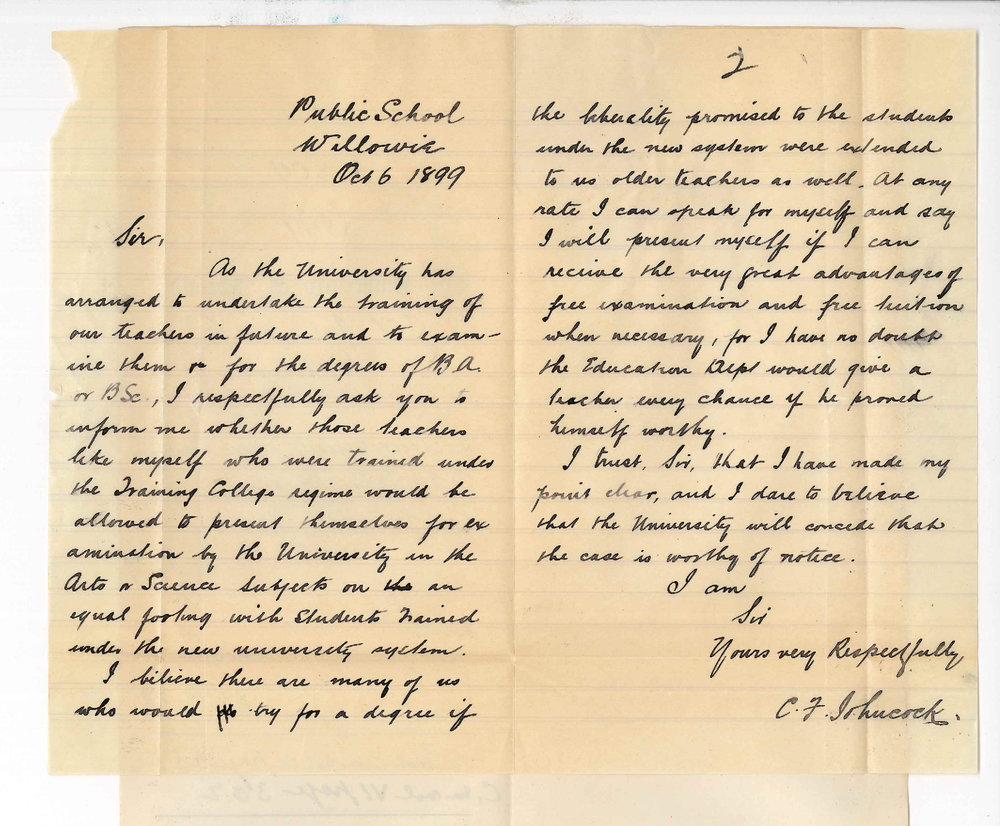 Public School
Willowie
Oct 6 1899
Sir,
As the University has
arranged to undertake the training of
our teachers in future and to exam-
ine them or for the degrees of B.A.
or BSc., I respectfully ask you to
inform me whether those teachers
like myself who were trained under
the Training College regime would be
allowed to present themselves for ex
amination by the University in the
Arts or Science subjects on the an
equal footing with Students trained
under the new university system.
I believe there are many of us
who would try for a degree if
2
the liberality promised to the students
under the new system were extended
to us older teachers as well. At any
rate I can speak for myself and say
I will present myself if I can
receive the very great advantages of
free examination and free tuition
when necessary, for I have no doubt
the Education Dept would give a
teacher every chance if he proved
himself worthy.
I trust, Sir, that I have made my
point clear, and I dare to believe
that the University will concede that
the case is worthy of notice.
I am
Sir
Yours very Respectfully
C. F. Johncock.